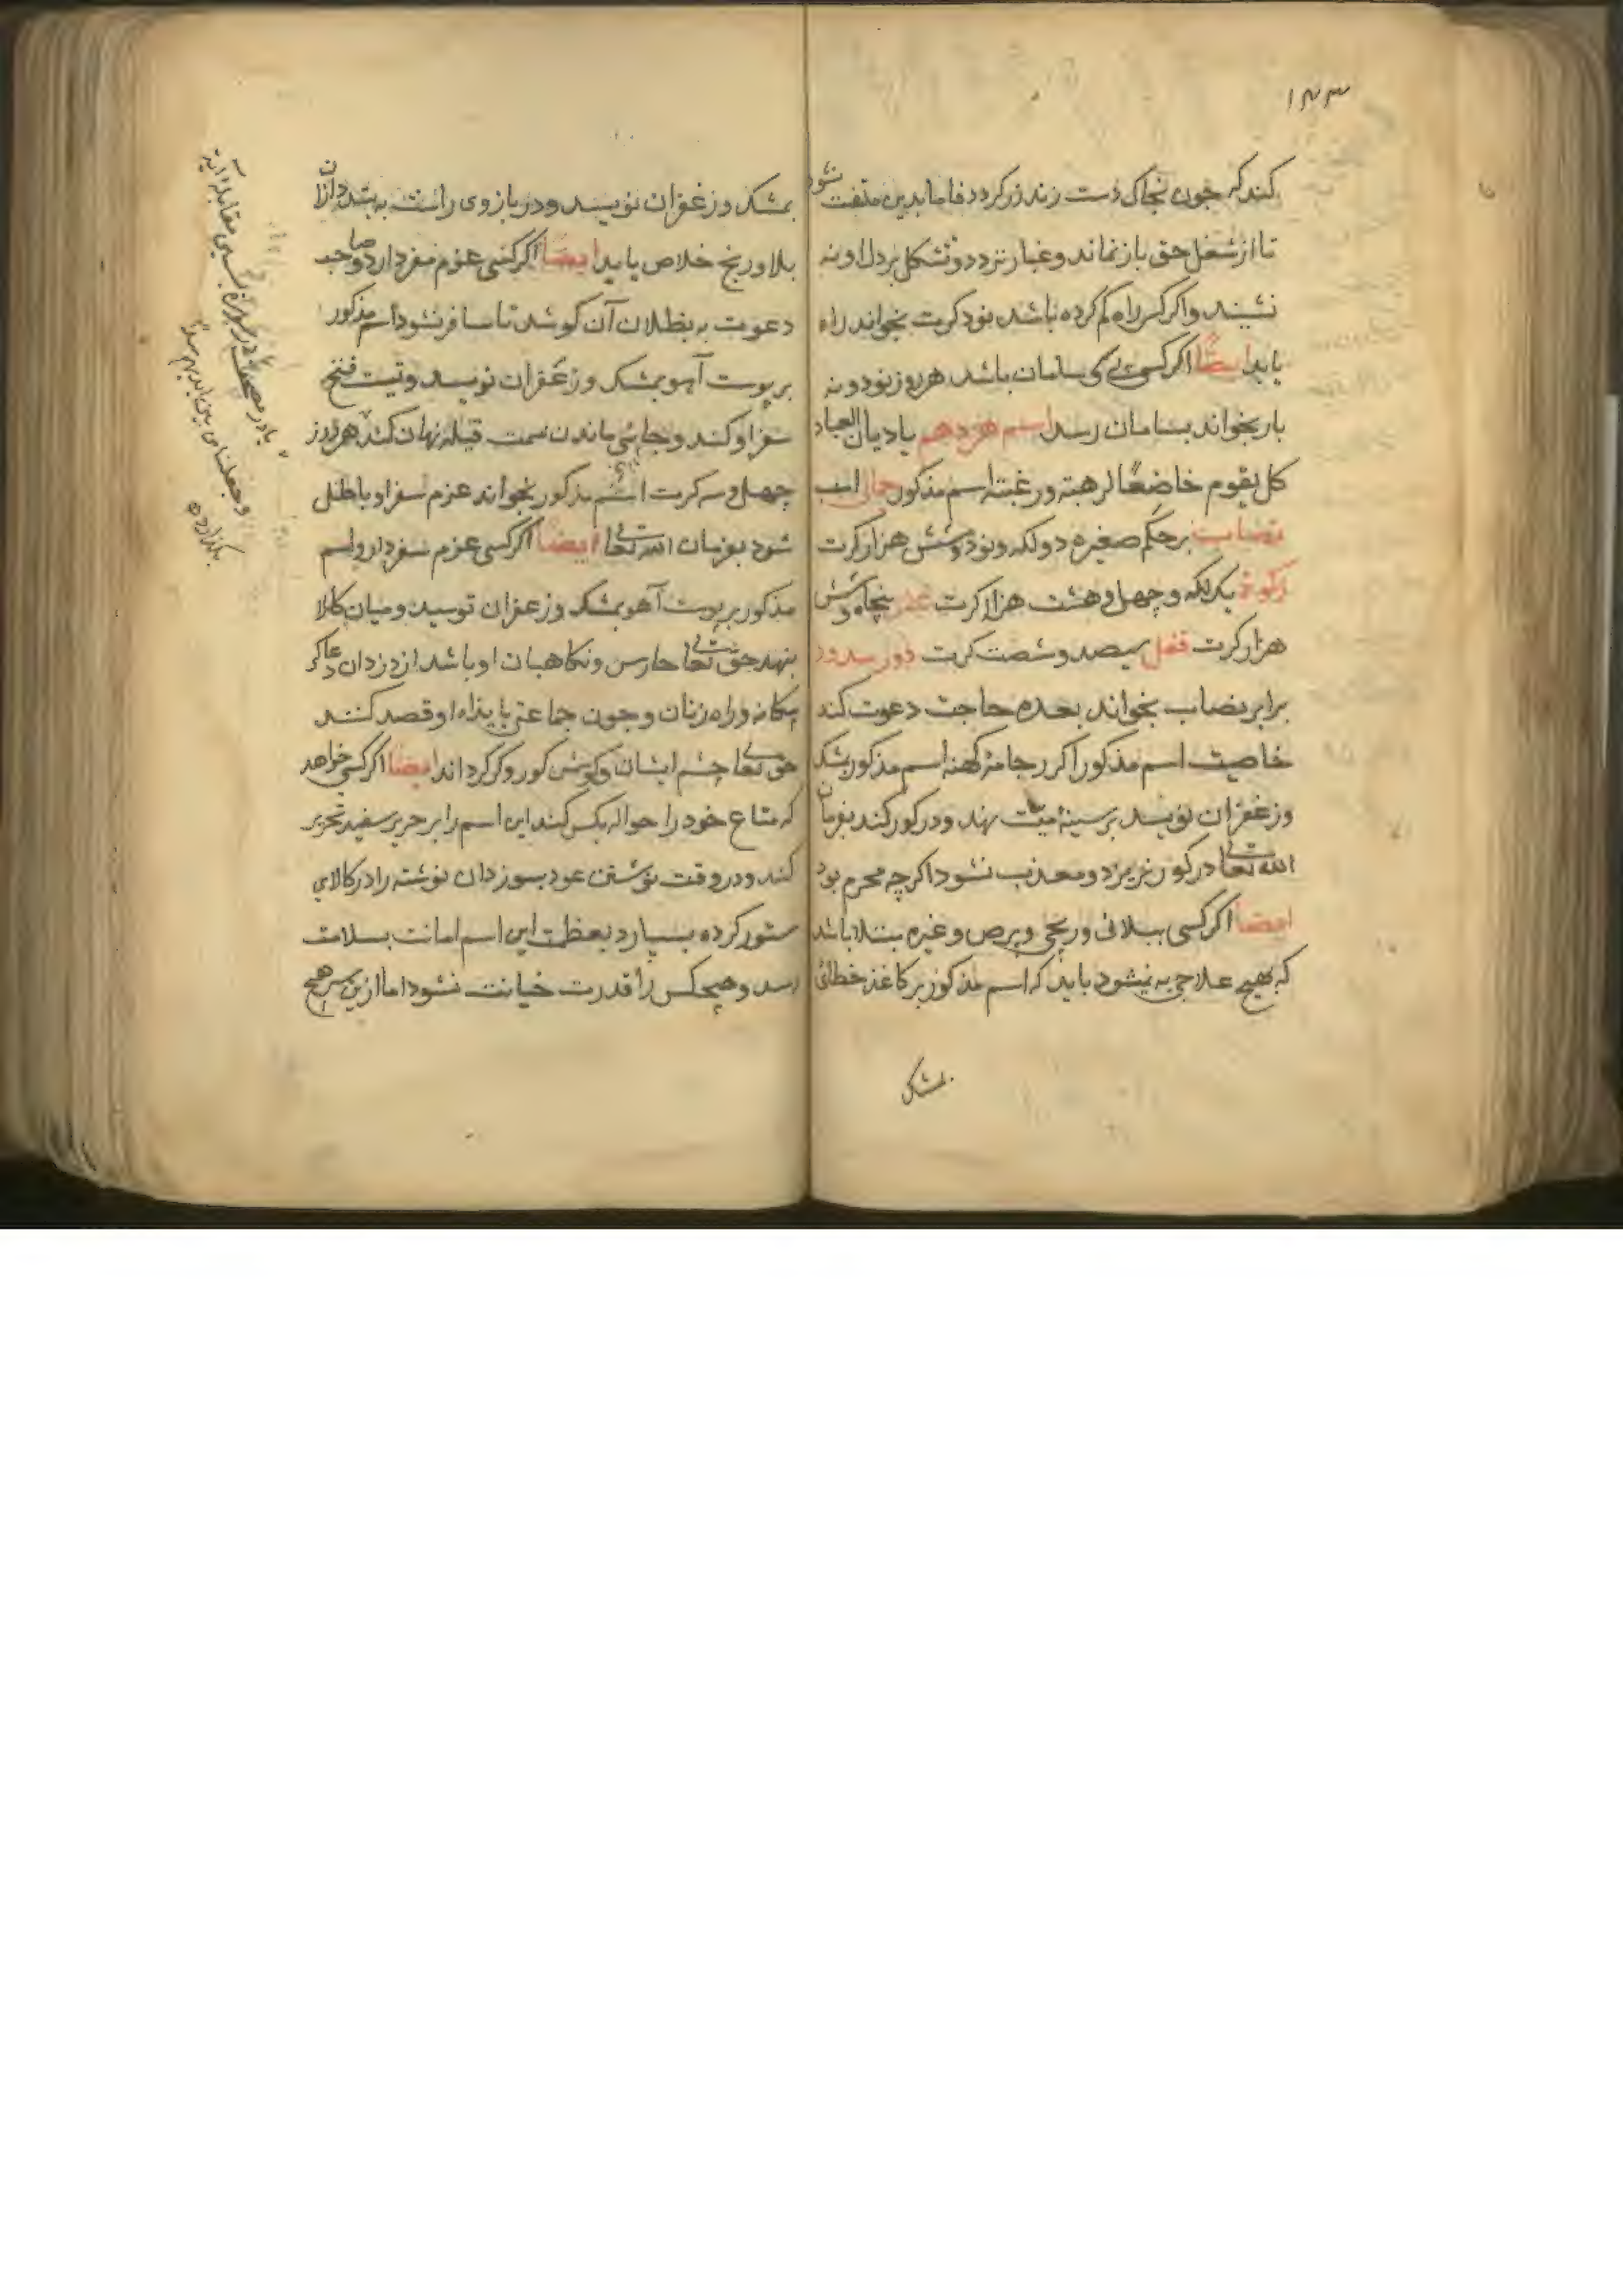 ۱۳۳
کند که جون بخاک دست زند زر کردد فاما بدین ملتفت نشود
تا از شغل حق باز نماند و غبار تردد و تشکل بر دل او نه
نشیند و اکر کسی راه کم کرده باشد نود کرت بخواند راه
یابد ایضًا اکر کسی بی سامان باشد هر روز نود و نه
بار بخواند بسامان رسد اسم هژدهم یا دیان العباد
کل یقوم خاضعًا لرهبته ورغبته اسم مذکور جمالی است
نصاب بر حکم صغیره دو لکه و نود و شش هزار کرت
زکوة یک لکه و چهل و هشت هزار کرت عشر پنجاه و شش
هزار کرت قفل سیصد و شصت کرت دور مدور
برابر نصاب بخواند بعده حاجت دعوت کند
خاصیت اسم مذکور اکر بر جامۀ کهنه اسم مذکور بمشک
و زعفران نویسد بر سینۀ میت نهد و در کور کند بفرمان
الله تعالی در کور نریزد و معذب نشود اکرچه مجرم بود
ایضا اکر کسی ببلائی و رنجی و برص و غیره مبتلا باشد
که بهیچ علاجی به نمیشود باید که اسم مذکور بر کاغذ خطائی
بمشک
بمشک و زعفران نویسد و در بازوی راست به بندد از آن
بلا و رنج خلاص یابد ایضًا اکر کسی عزم سفر دارد و صاحب
دعوت به بطلان آن کوشد تا مسافر نشود اسم مذکور
بر پوست آهو بمشک و زعفران نویسد و نیت فسخ
سفر او کند و جائی ماندن سمت قبله نهان کند هر روز
چهل و سه کرت اسم مذکور بخواند عزم سفر او باطل
شود بفرمان الله تعالی ایضًا اکر کسی عزم سفر دارد اسم
مذکور بر پوست آهو بمشک و زعفران نویسد و میان کالا
بنهد حق تعالی حارس و نکاهبان او باشد از دزدان و عاکر
بیکانه و راه زنان و جون جماعتی بایذاء او قصد کنند
حق تعالی چشم ایشان و کوش کور و کر کرداند ایضا اکر کسی خواهد
که متاع خود را حواله بکس کند این اسم را بر حریر سفید تحریر
کند و در وقت نوشتن عود بسوزد آن نوشته را در کالای
مستور کرده بسپارد بعظمت این اسم امانت بسلامت
رسد و هیچکس را قدرت خیانت نشود اما ازین سر هیچ
یا در مصحف در سورۀ یسین مقابله آیۀ
وجعلنا من بین ایدیهم سدًّا
بکذارد